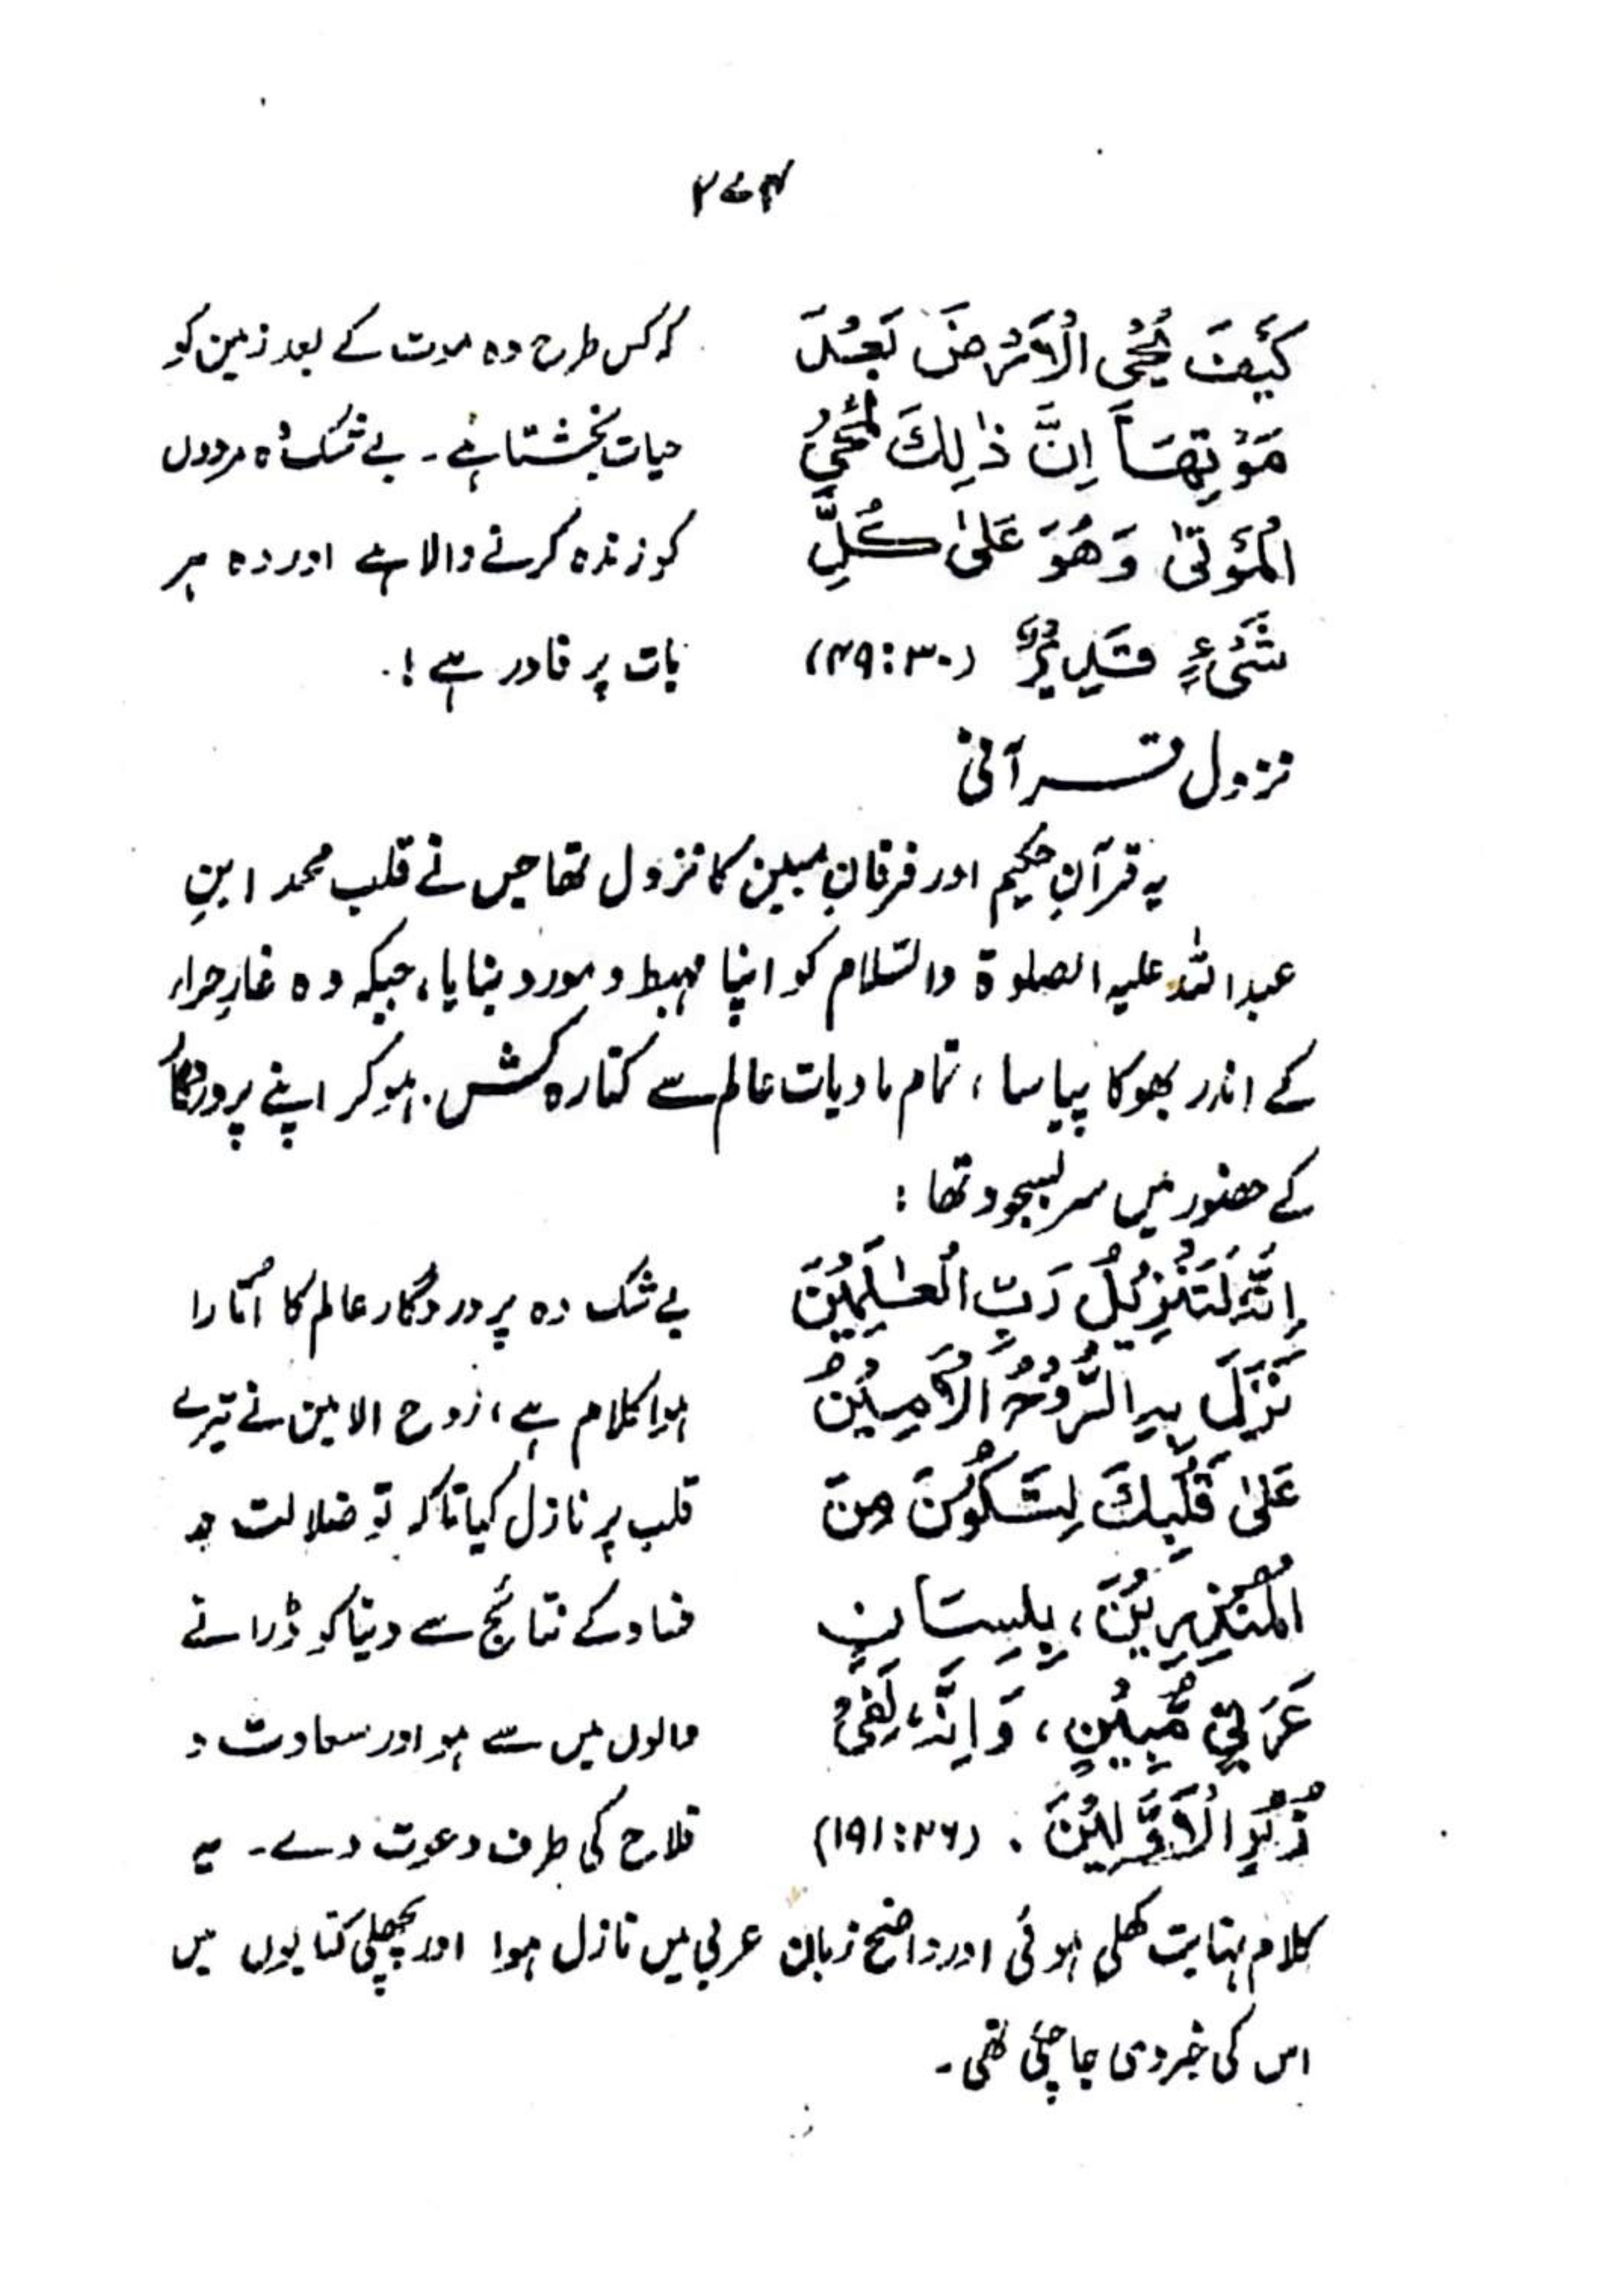 ۲۷۴
كَيْفَ يُحْيِ الْاَرْضَ بَعْدَ
مَوْتِهَا اِنَّ ذٰلِكَ لَمُحْيِ
الْمَوْتٰى وَهُوَ عَلٰى كُلِّ
شَىْءٍ قَدِيْرٌ (۴۹:۳۰)
کہ کس طرح وہ موت کے بعد زمین کو
حیات بخشتا ہے۔ بے شک وہ مردوں
کو زندہ کرنے والا ہے اور وہ ہر
بات پر قادر ہے!
نزول قرآنی
یہ قرآنِ حکیم اور فرقانِ مبین کا نزول تھا جس نے قلب محمد ابنِ
عبداللہ علیہ الصلوۃ والسّلام کو اپنا مہبط و مورد بنایا، جبکہ وہ غارِ حراء
کے اندر بھوکا پیاسا، تمام مادیات عالم سے کنارہ کش ہو کر اپنے پروردگار
کے حضور میں سر بسجود تھا:
اِنَّهٗ لَتَنْزِيْلُ رَبِّ الْعٰلَمِيْنَ
نَزَلَ بِهِ الرُّوْحُ الْاَمِيْنُ
عَلٰى قَلْبِكَ لِتَكُوْنَ مِنَ
الْمُنْذِرِيْنَ، بِلِسَانٍ
عَرَبِيٍّ مُّبِيْنٍ، وَاِنَّهٗ لَفِىْ
زُبُرِ الْاَوَّلِيْنَ. (۱۹۱:۲۶)
بے شک وہ پروردگار عالم کا اُتارا
ہوا کلام ہے، روح الامین نے تیرے
قلب پر نازل کیا تاکہ تو ضلالت و
فساد کے نتائج سے دنیا کو ڈرانے
والوں میں سے ہو اور سعادت و
فلاح کی طرف دعوت دے۔ یہ
کلام نہایت کھلی ہوئی اور واضح زبان عربی میں نازل ہوا اور پچھلی کتابوں میں
اس کی خبر دی جا چکی تھی۔